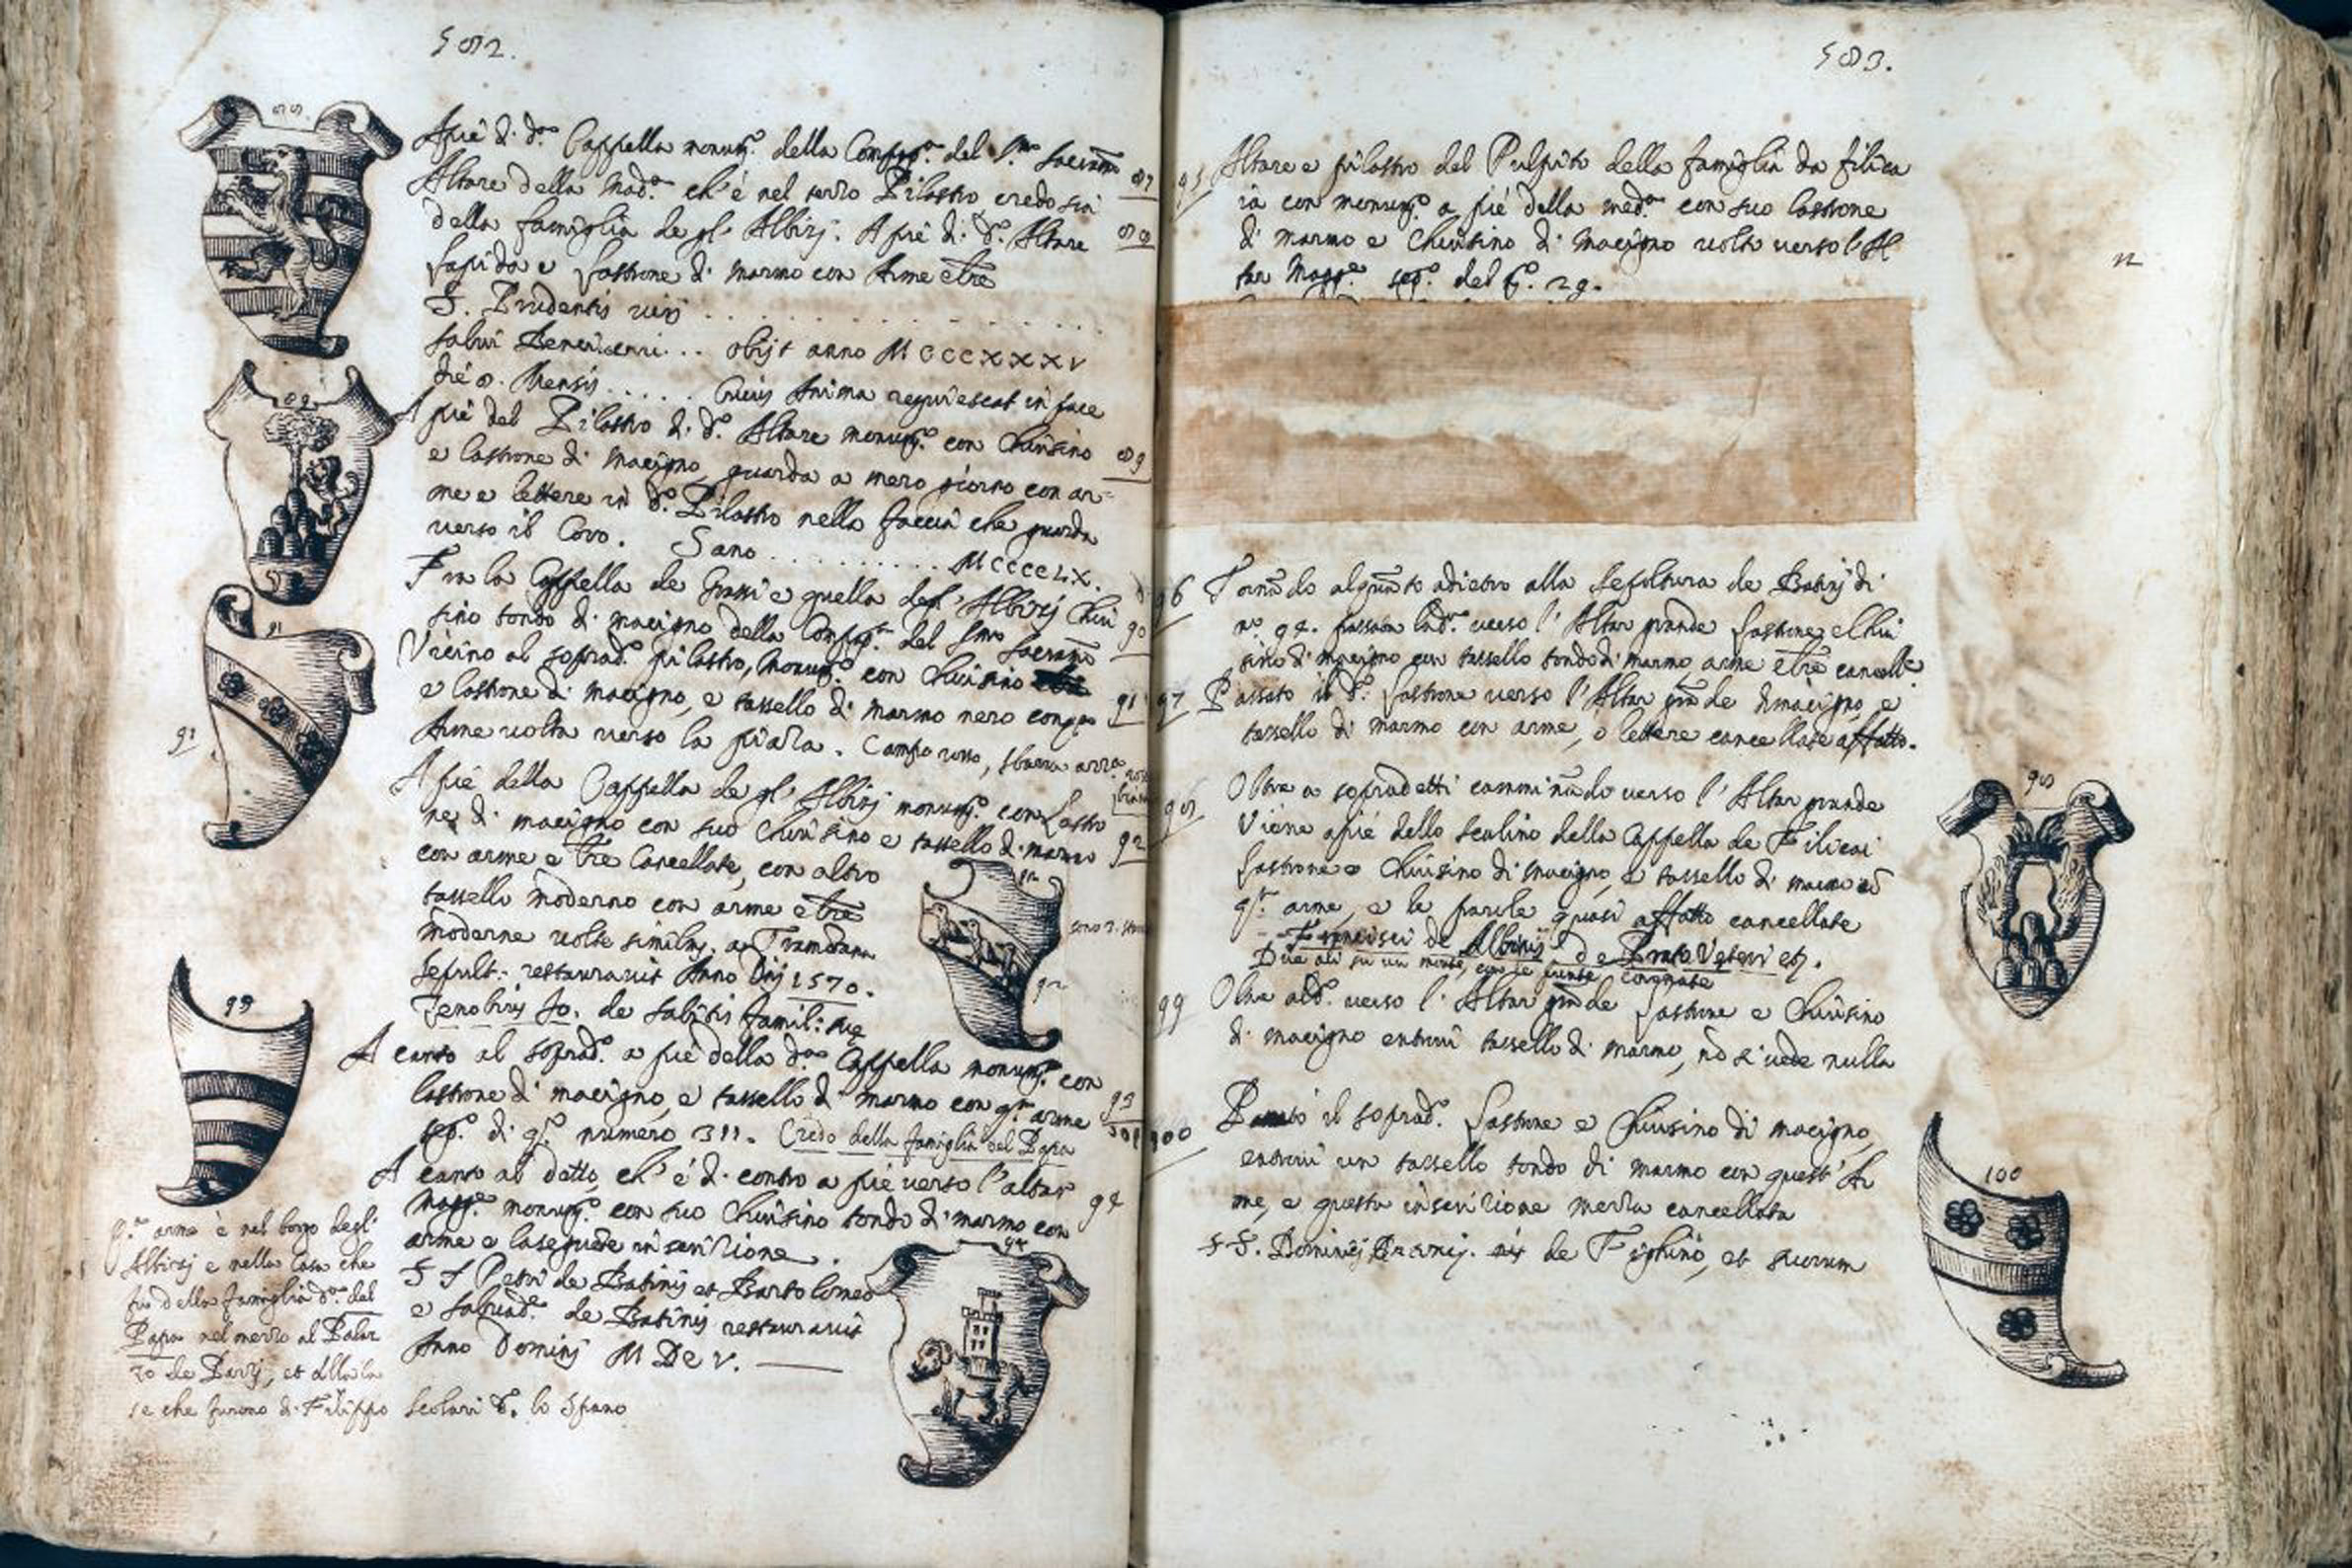 582.
88
Apiè di d.ª Cappella monum.º della Comp.ª del S.mo Sacram.
Altare della Mad.ª ch'è nel terzo Pilastro credo sia 87
della famiglia de gl'Albizj. A piè di d.º Altare 88
lapida e lastrone di marmo con Arme e tre
S. Prudentis viri . . . . . . . . . . . . . .
Salvi Benvicenni . . . obijt anno MCCCXXXV
die 8. Mensis . . . . . Cuius Anima requiescat in pace
A piè del Pilastro di d.º Altare monum.º con Chiusino
e lastrone di macigno guarda a mezo giorno con ar= 89
me e lettere in d.º Pilastro nella faccia che guarda
verso il Coro. S ano . . . . . . . . . MCCCCLX.
89
Fra la Cappella de Grassi e quella degl'Albizj Chiu
sino tondo di macigno della Comp.ª del S.mo Sacram.º 90
Vicino al soprad.º pilastro, Monum.º con Chiusino
e lastrone di macigno, e tassello di marmo nero con 91
Arme volta verso la piazza. Campo rosso, sbarra azzra
91
91
A piè della Cappella de gl'Albizj monum.º con Lastro
ne di macigno con suo Chiusino e tassello di marmo 92
con arme e lre Cancellate, con altro
tassello moderno con arme e lre
moderne volte similm. a Tramontana
Sepult. restauravit Anno Dnj 1570.
Zenobius Jo. de Sabitis famil: suę
92
92
A canto al soprad.º a piè della d.ª Cappella monum.º con
lastrone di macigno, e tassello di marmo con q.ª arme 93
sep.º di q.º numero 311. Credo della famiglia del Papa
93
A canto al detto, ch'è di contro a piè verso l'altar
Magg.e monum.º con suo Chiusino tondo di marmo con 94
arme e la seguente inscrizione.
S S Petri de Batinis et Bartolomeo
e Salvad.e de Batinis restauravit
Anno Dominj MDCV.
94
Q.ª arme è nel borgo degl'
Albizzj e nella Casa che
fu della famiglia d.ª del
Papa nel mezzo al Palaz
zo de Pazzj, et alla ca
se che furono di Filippo Scolari d.º lo Spano
583.
95 Altare e pilastro del Pulpito della famiglia da Filica
ia con monum.º a piè della med.ª con suo lastrone
di marmo e Chiusino di macigno volto verso l'Al
tar Magg.e sep.º del n.º 29.
96 Tornãdo alquãto adietro alla Sepoltura de Batinj di
n.º 94. passata la d.ª verso l'Altar grande lastrone e Chiu
sino di macigno con tassello tondo di marmo arme e lre cancell.e
97 Passato il d.º lastrone verso l'Altar grãde di macigno, e
tassello di marmo con arme, e lettere cancellate affatto.
98 Oltre a sopradetti camminãdo verso l'Altar grande
Viene a piè dello scalino della Cappella de Filicai
lastrone e Chiusino di macigno, e tassello di marmo cõ
q.ª arme, e le parole quasi affatto cancellate
- - Francisci de Albinis de Prato Veteri etc.
Due ali su un monte, con le punte coronate
98
99 Oltre al d.º verso l'Altar grãde lastrone e Chiusino
di macigno entrovi tassello di marmo, nõ si vede nulla
100 Passato il soprad.º lastrone e Chiusino di macigno,
entrovi un tassello tondo di marmo con quest'Ar
me, e questa inscrizione mezza cancellata
S S. Dominicj de Fighino, et suorum
100